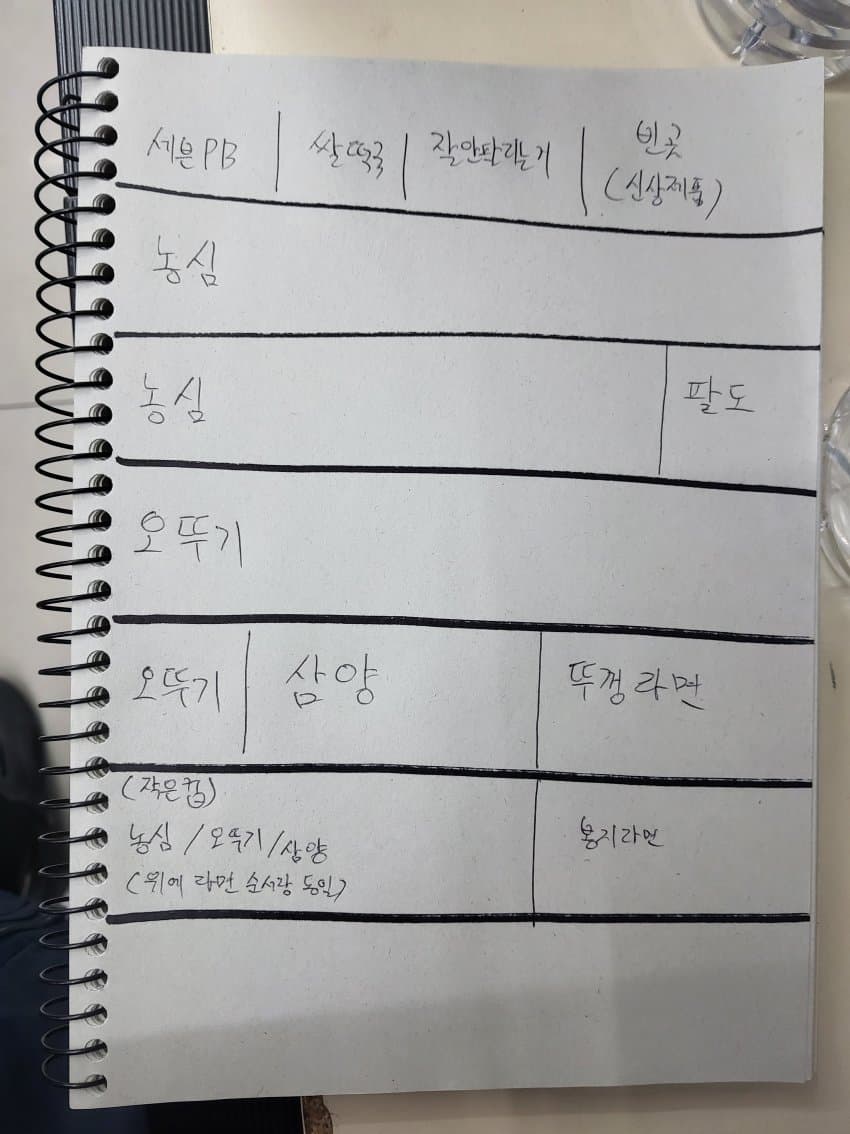 세븐PB | 쌀떡국 | 잘안팔리는거 | 빈곳
(신상제품)
농심
농심 | 팔도
오뚜기
오뚜기 | 삼양 | 뚜껑라면
(작은컵)
농심 / 오뚜기 / 삼양 | 봉지라면
(위에 라면 순서랑 동일)